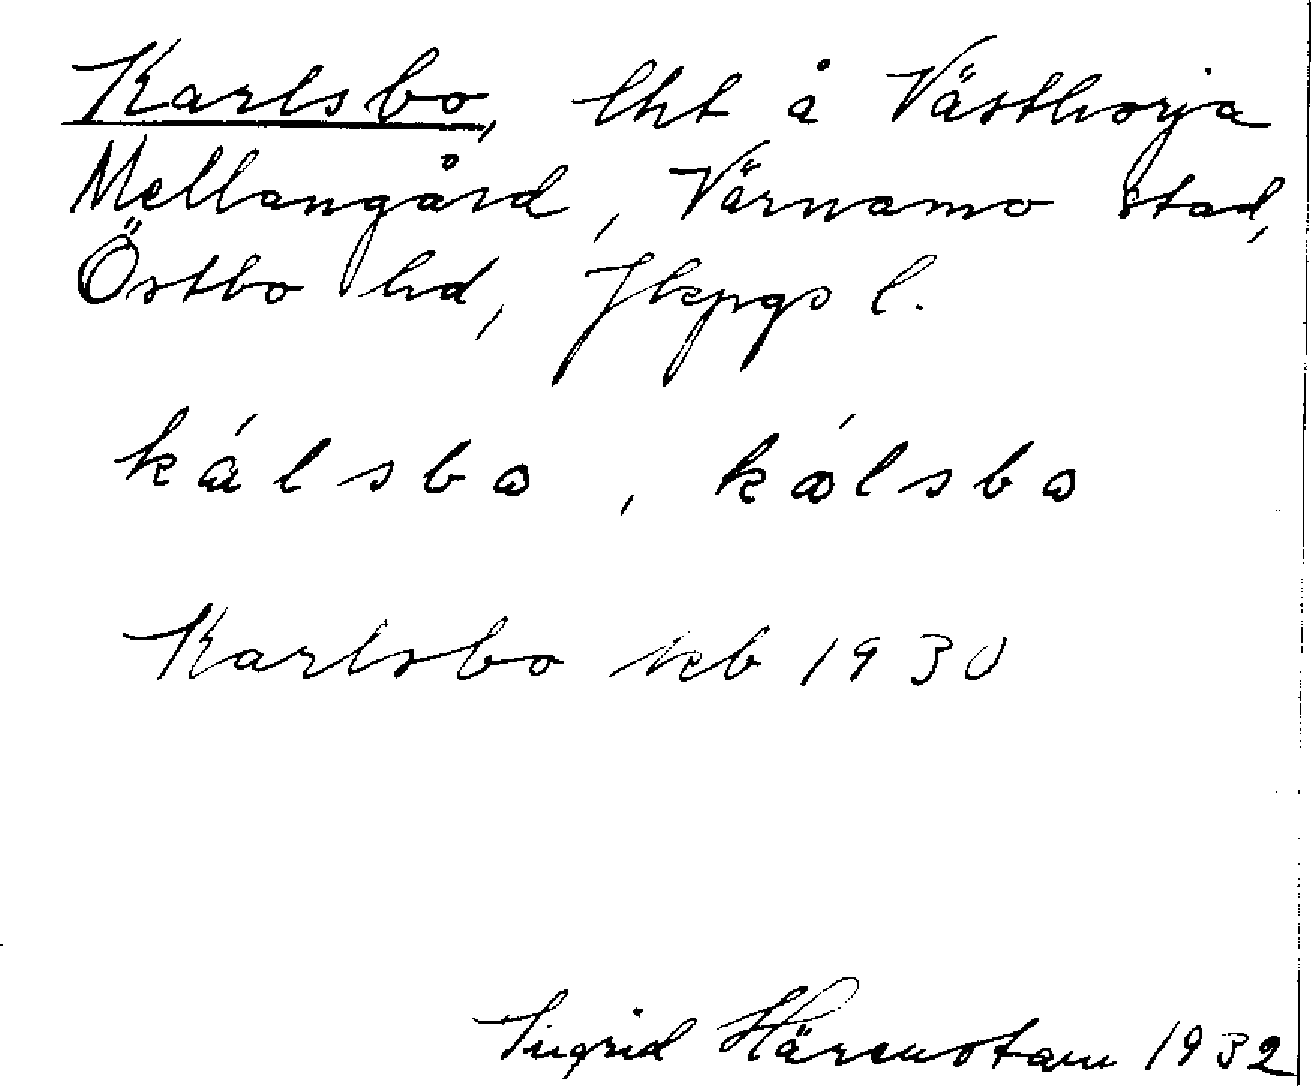 Karlsbo, lht å Västhorja
Mellangård, Värnamo stad,
Östbo hd, Jkpgs l.
kálsbo, kólsbo
Karlsbo kb 1930
Ingrid Härenstam 1932